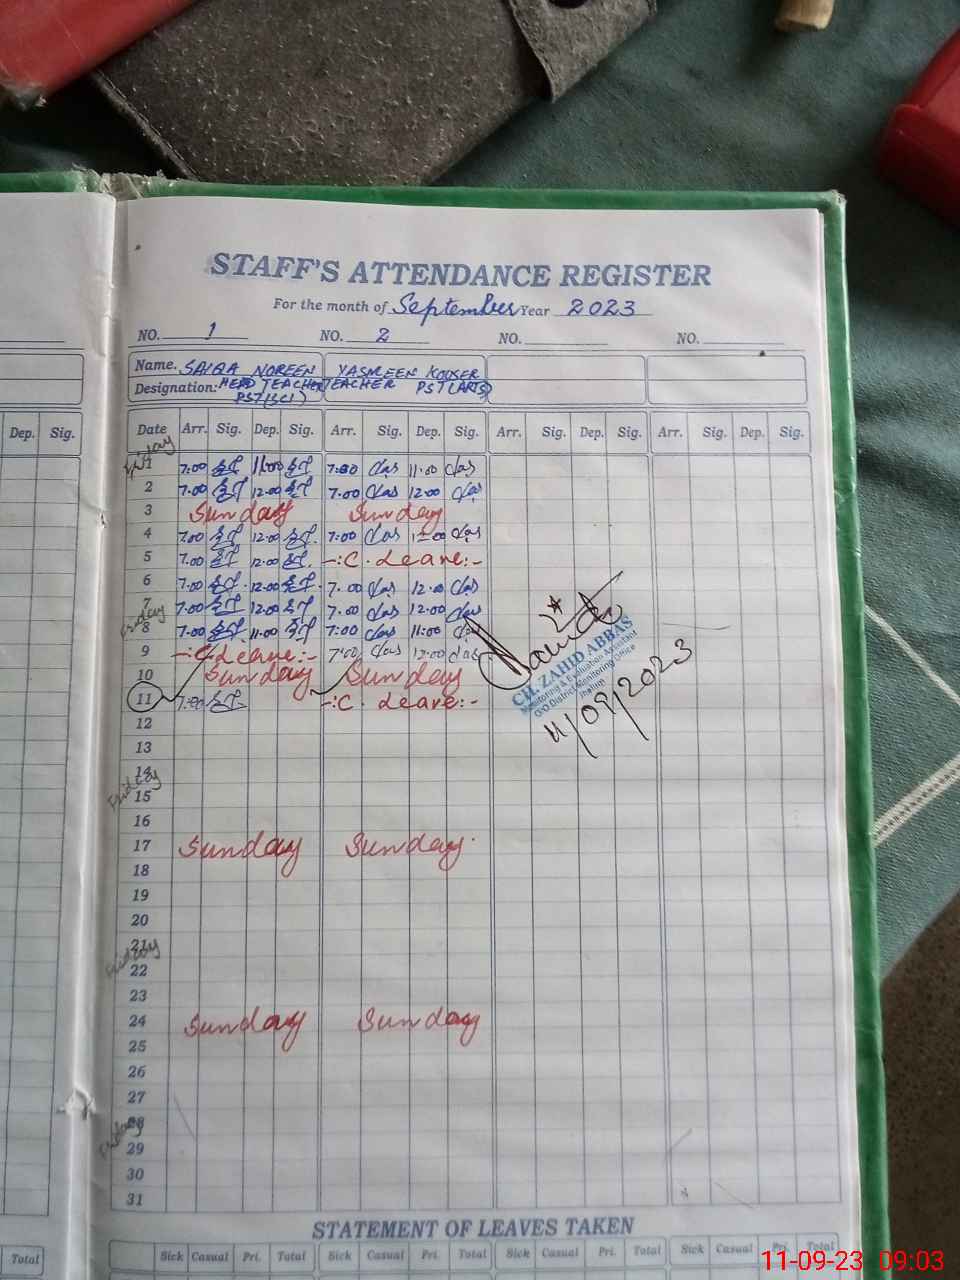 STAFF'S ATTENDANCE REGISTER
For the month of September Year 2023
NO. 1 NO. 2 NO. NO.
Name. SAIQA NOREEN YASMEEN KOUSER
Designation: HEAD TEACHER TEACHER PST (ARTS)
PST (SCI)
Dep. Sig. Date Arr. Sig. Dep. Sig. Arr. Sig. Dep. Sig. Arr. Sig. Dep. Sig. Arr. Sig. Dep. Sig.
Friday
1 7.00 11.00 7:00 11:00
2 7.00 12.00 7.00 12.00
3 Sunday Sunday
4 7.00 12.00 7:00 12:00
5 7.00 12.00 -:C. Leave:-
6 7.00 12.00 7.00 12.00
7 7.00 12.00 7.00 12.00
Friday
8 7.00 11.00 7:00 11:00
9 -:C. Leave:- 7:00 12:00
10 Sunday Sunday
11 7.00 -:C. Leave:-
CH. ZAHID ABBAS
Monitoring & Evaluation Assistant
O/O District Monitoring Office
Jhelum
11/09/2023
12
13
14
Friday
15
16
17 Sunday Sunday
18
19
20
21
Friday
22
23
24 Sunday Sunday
25
26
27
28
Friday
29
30
31
STATEMENT OF LEAVES TAKEN
Total Sick Casual Pri. Total Sick Casual Pri. Total Sick Casual Pri. Total Sick Casual Pri. Total
11-09-23 09:03